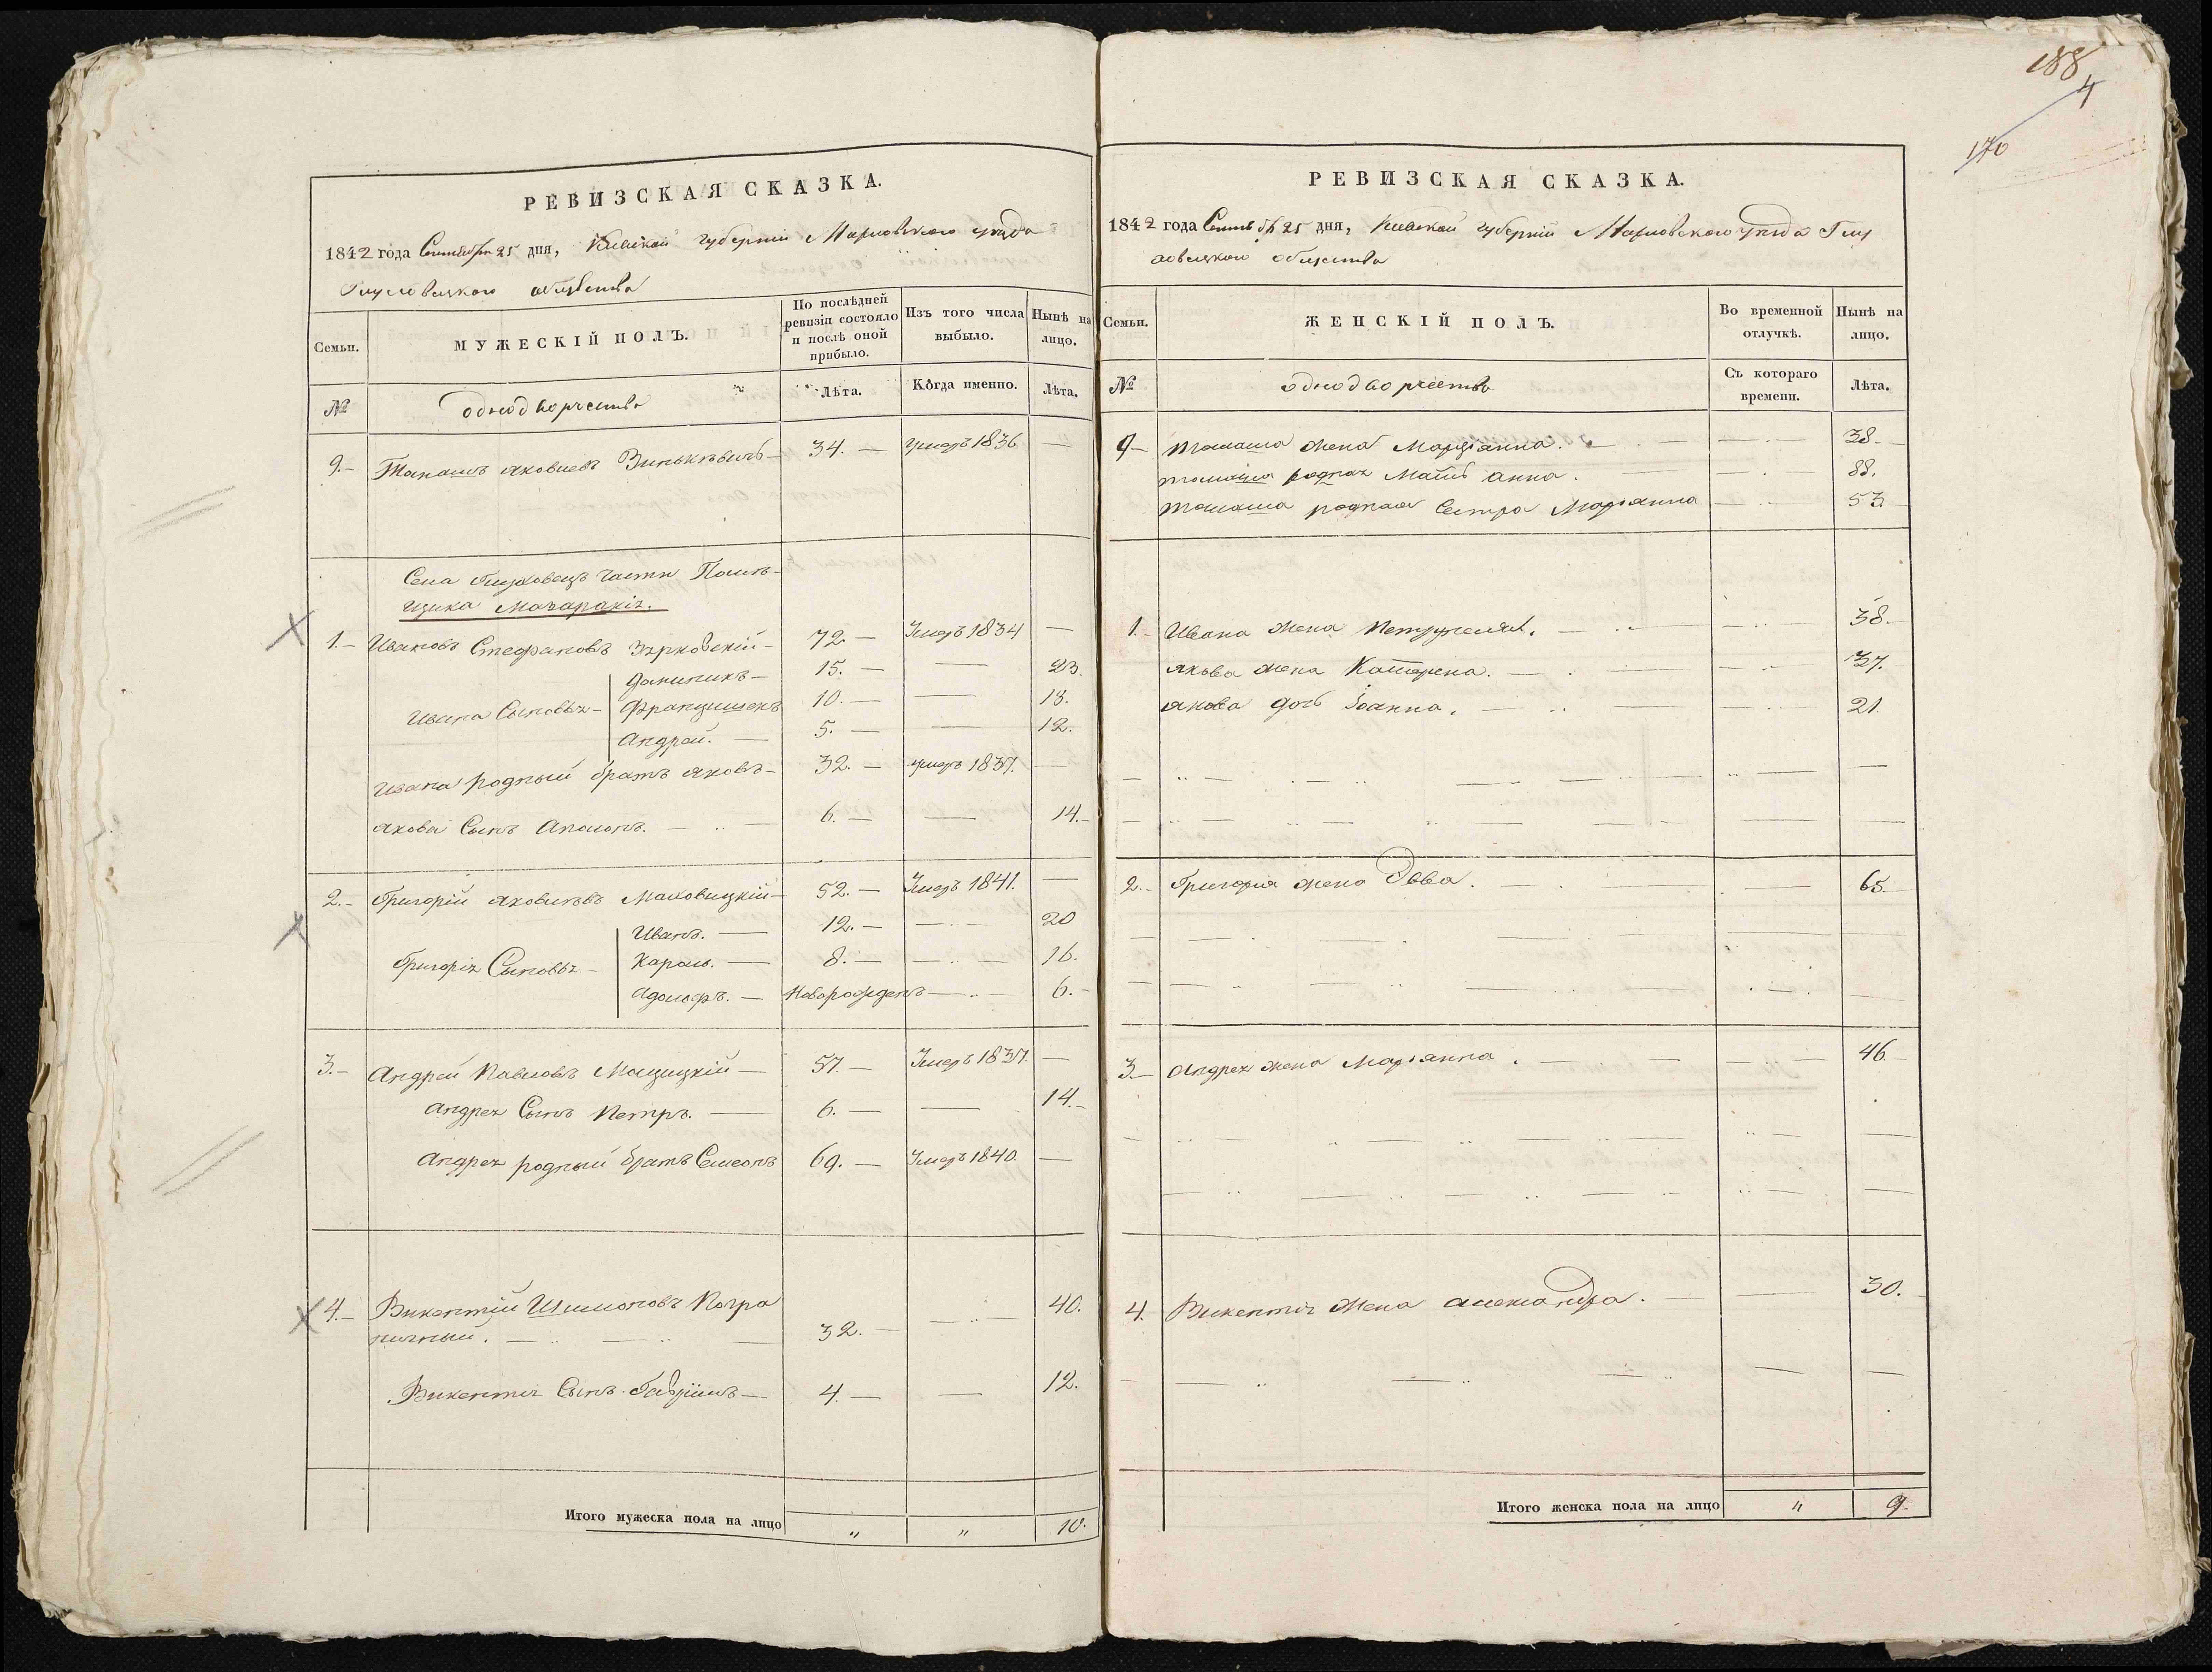 188
4
170
РЕВИЗСКАЯ СКАЗКА.
1842 года Сентября 25 дня, Киевской губернiи уѣзда
общества
Семьи.
МУЖЕСКІЙ ПОЛЪ.
По послѣдней ревизіи состояло и послѣ оной прибыло.
Изъ того числа выбыло.
Нынѣ на лицо.
№
однодворчества
Лѣта.
Когда именно.
Лѣта.
9.- Томашъ Яковлевъ 34.- умеръ 1836 —
Села части Помѣ-
щика
1.- Ивановъ Стефановъ 72- Умеръ 1834 —
Доминикъ— 15.- — 23.
Ивана Сыновья- Францишекъ 10.- — 18.
Андрей. — 5.- — 12.
Ивана родный братъ Яковъ- 32.- умеръ 1837. —
Якова Сынъ 6.- — 14.-
2.- Григорій Яковлевъ Маковицкій- 52.- Умеръ 1841. —
Иванъ. — 12.- — 20
Григорія Сыновья- Кароль. — 8.- — 16.
Адольфъ. — Новорожденъ — 6.-
3.- Андрей Павловъ 57.- Умеръ 1837. —
Андрея Сынъ Петръ. — 6.- — 14.-
Андрея родный братъ Семеонъ 69.- Умеръ 1840. —
4.- Викентій Шимоновъ Погра 40.
ничный. — 32.-
Викентія Сынъ — 4.- — 12.
Итого мужеска пола на лицо „ „ 10.
РЕВИЗСКАЯ СКАЗКА.
1842 года 25 дня, Киевской губерніи уѣзда
общества
Семьи.
ЖЕНСКІЙ ПОЛЪ.
Во временной отлучкѣ.
Нынѣ на лицо.
№
однодворчества
Съ котораго времени.
Лѣта.
9- Томаша жена Марціанна. — 38.-
Томаша родная Мать Анна. — 88.
Томаша родная Сестра Маріанна — 53
1.- Ивана жена — 38.-
Якова жена Катерина. — 37.
Якова дочь Іоанна. — 21.
2.- Григорія жена Эва. — 65.
3.- Андрея жена Маріанна. — 46
4. Викентія жена Александра. — 30.
Итого женска пола на лицо „ 9.